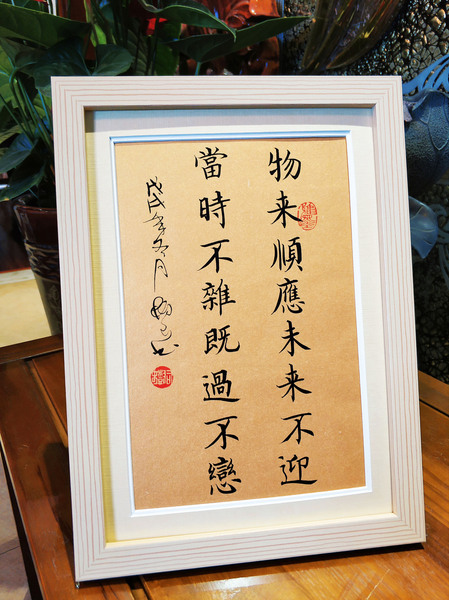 物来順應未来不迎
當時不雜既過不戀
戊戌年冬月